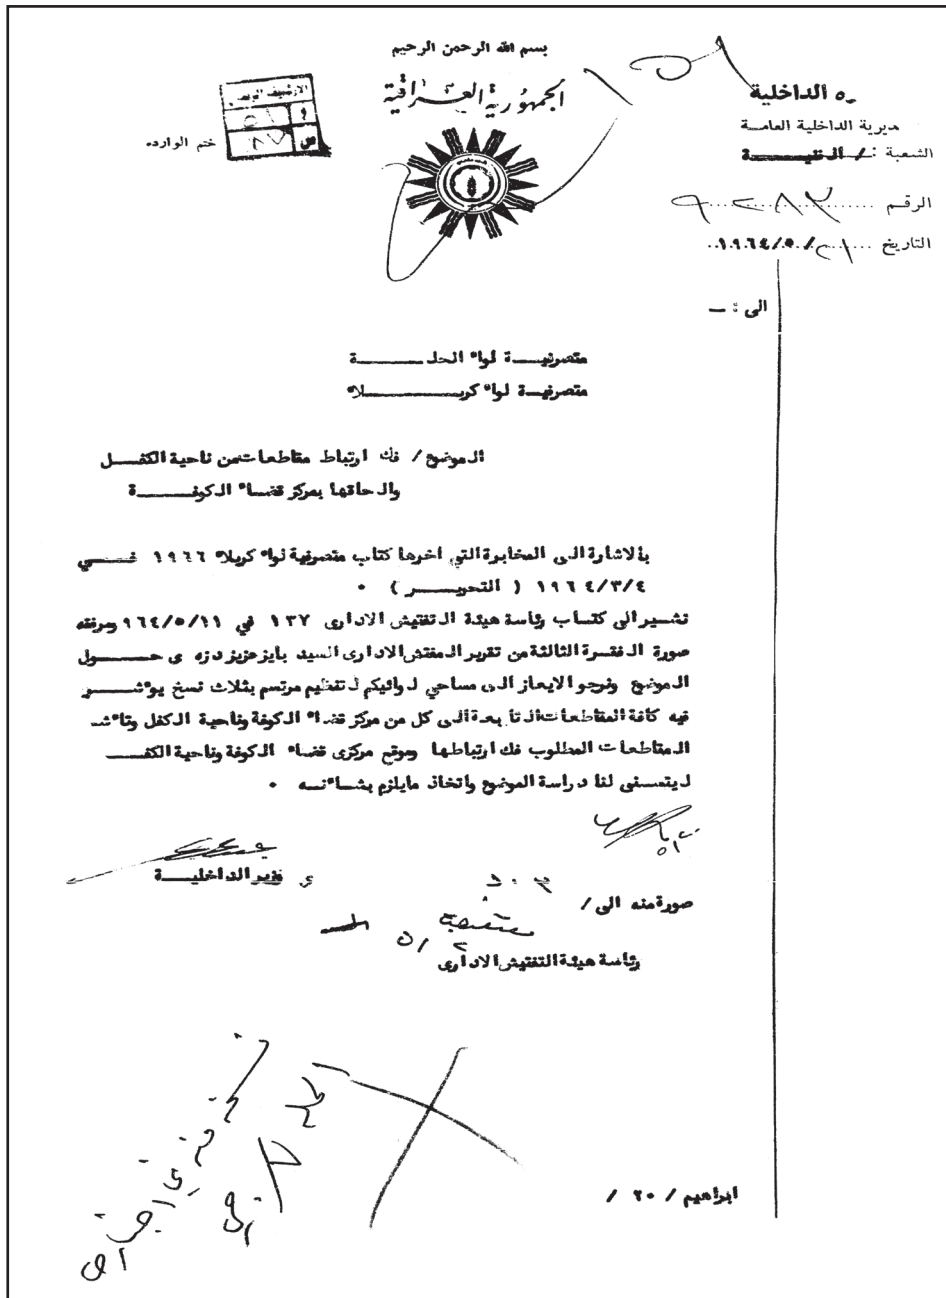 بسم الله الرحمن الرحيم
الجمهورية العراقية
ه الداخلية
مديرية الداخلية العامة
الشعبة : / الـفنيـــــــة
ختم الوارده
الرقم ٩٢٨٣
التاريخ ٢١/٥/١٩٦٤
الى : ــ
متصرفيــة لواء الحلــــــة
متصرفيــة لواء كربــــــلاء
الموضوع / فك ارتباط مقاطعات من ناحية الكفـــل
والحاقها بمركز قضـاء الكوفـــــة
بالاشارة الى المخابرة التي اخرها كتاب متصرفية لواء كربلاء ١٩٦٦ فــــي
١٩٦٤/٣/٤ ( التحريـــر ) ٠
نشـير الى كتـاب رئاسة هيئة التفتيش الادارى ١٣٧ في ٩٦٤/٥/١١ ومرفقه
صورة الفقـرة الثالثة من تقرير المفتش الادارى السيد بايز عزيز دزه ى حــول
الموضوع ونرجو الايعاز الى مساحي لوائيكم لتنظيم مرتسم بثلاث نسخ يوءشــر
فيه كافة المقاطعات التابعة الى كل من مركز قضاء الكوفة وناحية الكفل وتاءشـ
المقاطعات المطلوب فك ارتباطها وموقع مركزى قضاء الكوفة وناحية الكفــ
ليتسـنى لنا دراسة الموضوع واتخاذ مايلزم بشــاءنــه ٠
وزير الداخليــة
صورة منه الى /
رئاسة هيئة التفتيش الادارى
ابراهيم / ٢٠ /